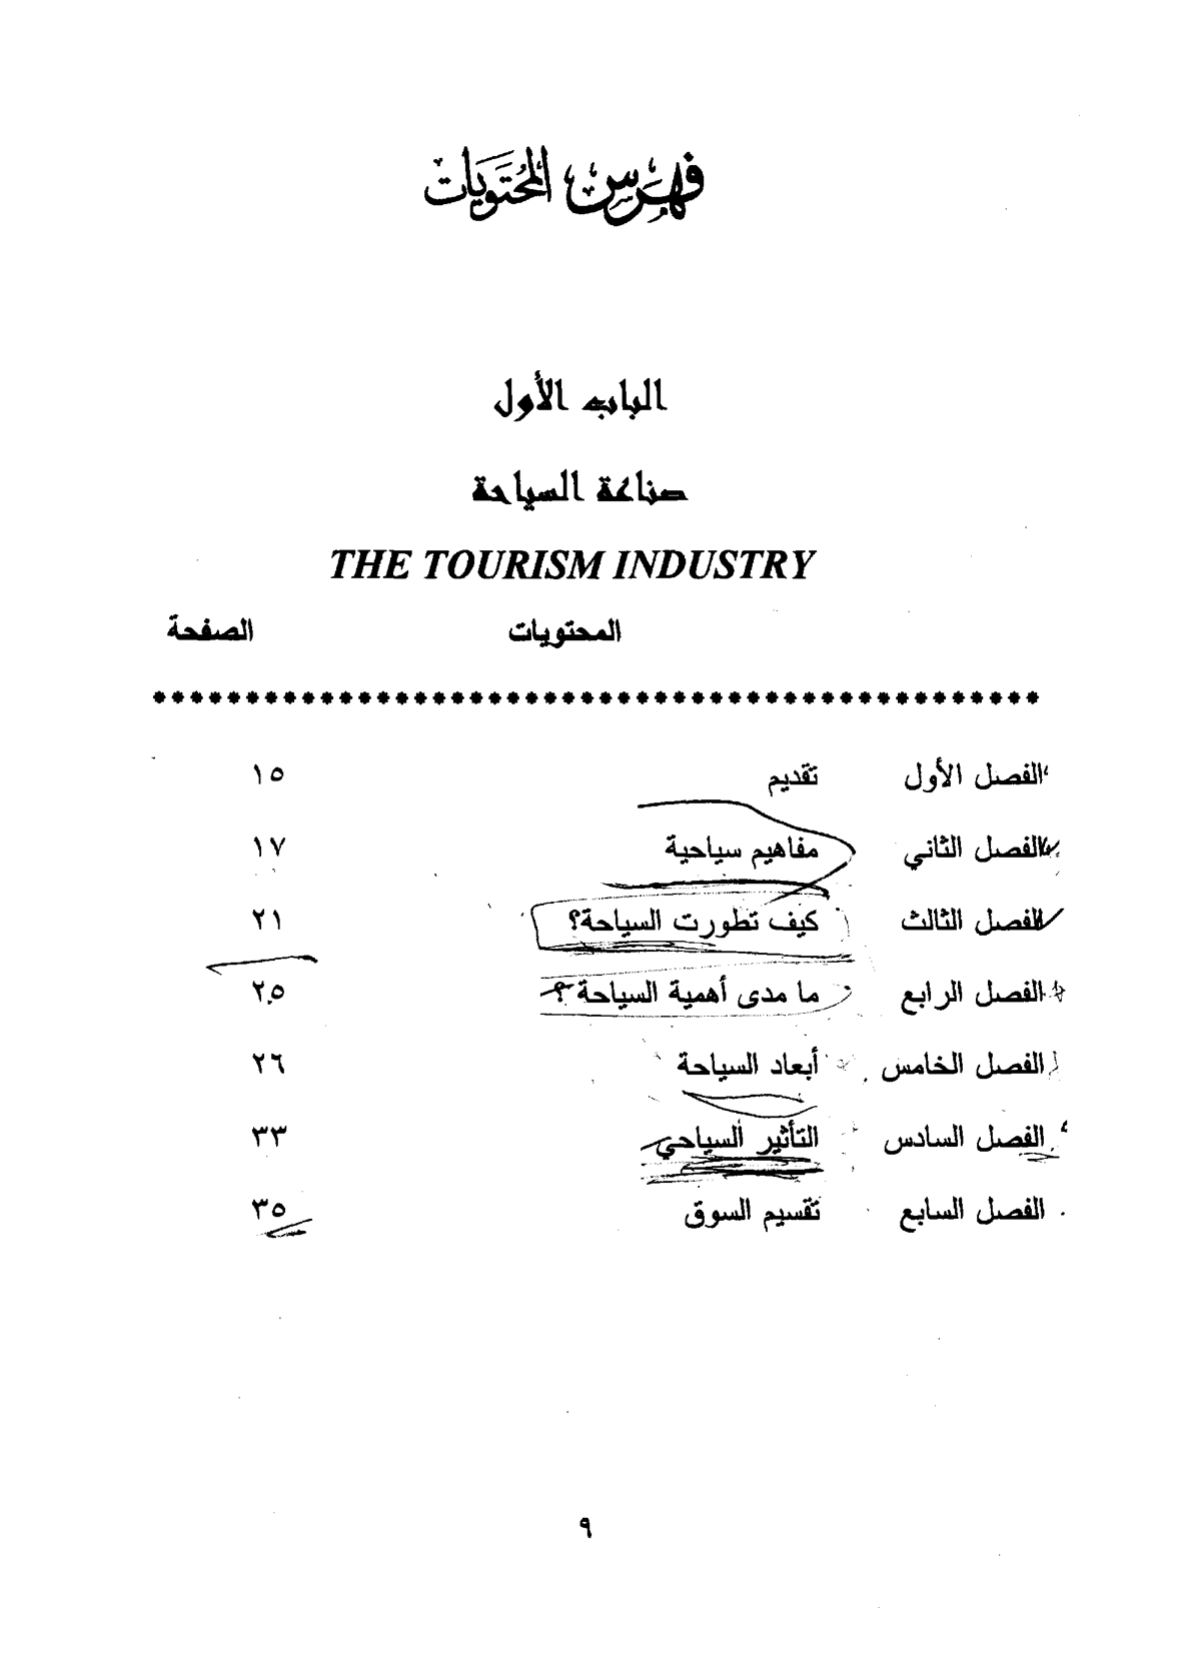 فهرس المحتويات
الباب الأول
صناعة السياحة
THE TOURISM INDUSTRY
المحتويات الصفحة
الفصل الأول تقديم ١٥
الفصل الثاني مفاهيم سياحية ١٧
الفصل الثالث كيف تطورت السياحة؟ ٢١
الفصل الرابع ما مدى أهمية السياحة؟ ٢٥
الفصل الخامس أبعاد السياحة ٢٦
الفصل السادس التأثير السياحي ٣٣
الفصل السابع تقسيم السوق ٣٥
٩